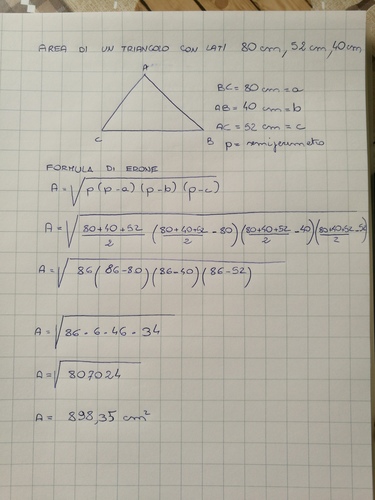 AREA DI UN TRIANGOLO CON LATI 80 cm, 52 cm, 40 cm
A
C
B
BC = 80 cm = a
AB = 40 cm = b
AC = 52 cm = c
p = semiperimetro
FORMULA DI ERONE
A = √p(p-a)(p-b)(p-c)
A = √(80+40+52)/2 ((80+40+52)/2 - 80)((80+40+52)/2 - 40)((80+40+52)/2 - 52)
A = √86(86-80)(86-40)(86-52)
A = √86 · 6 · 46 · 34
A = √807024
A = 898,35 cm²